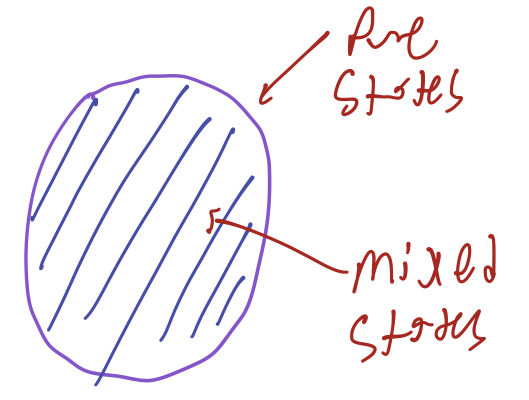 Pure
States
mixed
States